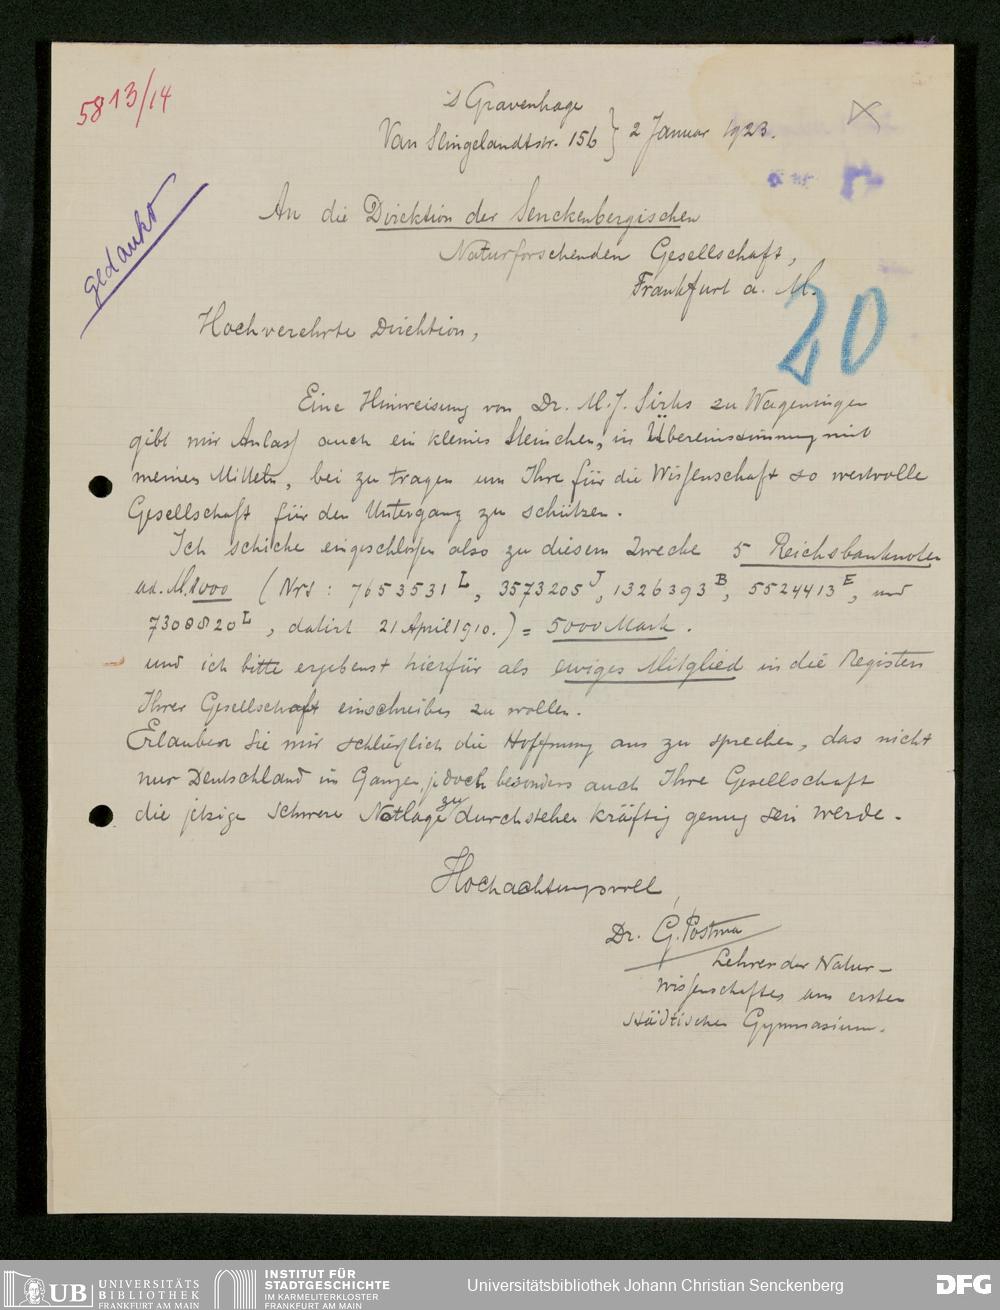 5813/14
's Gravenhage
Van Slingelandtstr. 156 } 2 Januar 1923.
gedankt
An die Direktion der Senckenbergischen
Naturforschenden Gesellschaft,
Frankfurt a. M.
20
Hochverehrte Direktion,
Eine Hinweisung von Dr. M. J. Sirks zu Wageningen
gibt mir Anlass auch ein kleines Steinchen, in Übereinstimmung mit
meinen Mitteln, bei zu tragen um Ihre für die Wissenschaft so wertvolle
Gesellschaft für den Untergang zu schützen.
Ich schicke eingeschlossen also zu diesem Zwecke 5 Reichsbanknoten
ad. M. 1000 (Nrs : 7653531 L, 3573205 J, 1326393 B, 5524413 E, und
7308820 L, datirt 21 April 1910.) = 5000 Mark.
und ich bitte ergebenst hierfür als ewiges Mitglied in die Registen
Ihrer Gesellschaft einschreiben zu wollen.
Erlauben Sie mir schliesslich die Hoffnung aus zu sprechen, das nicht
nur Deutschland im Ganzen, jedoch besonders auch Ihre Gesellschaft
die jetzige schwere Notlage zu durchstehen kräftig genug sein werde.
Hochachtungsvoll,
Dr. G. Postma
Lehrer der Natur-
wissenschaften am ersten
städtischen Gymnasium.
UB UNIVERSITÄTS
BIBLIOTHEK
FRANKFURT AM MAIN
INSTITUT FÜR
STADTGESCHICHTE
IM KARMELITERKLOSTER
FRANKFURT AM MAIN
Universitätsbibliothek Johann Christian Senckenberg
DFG